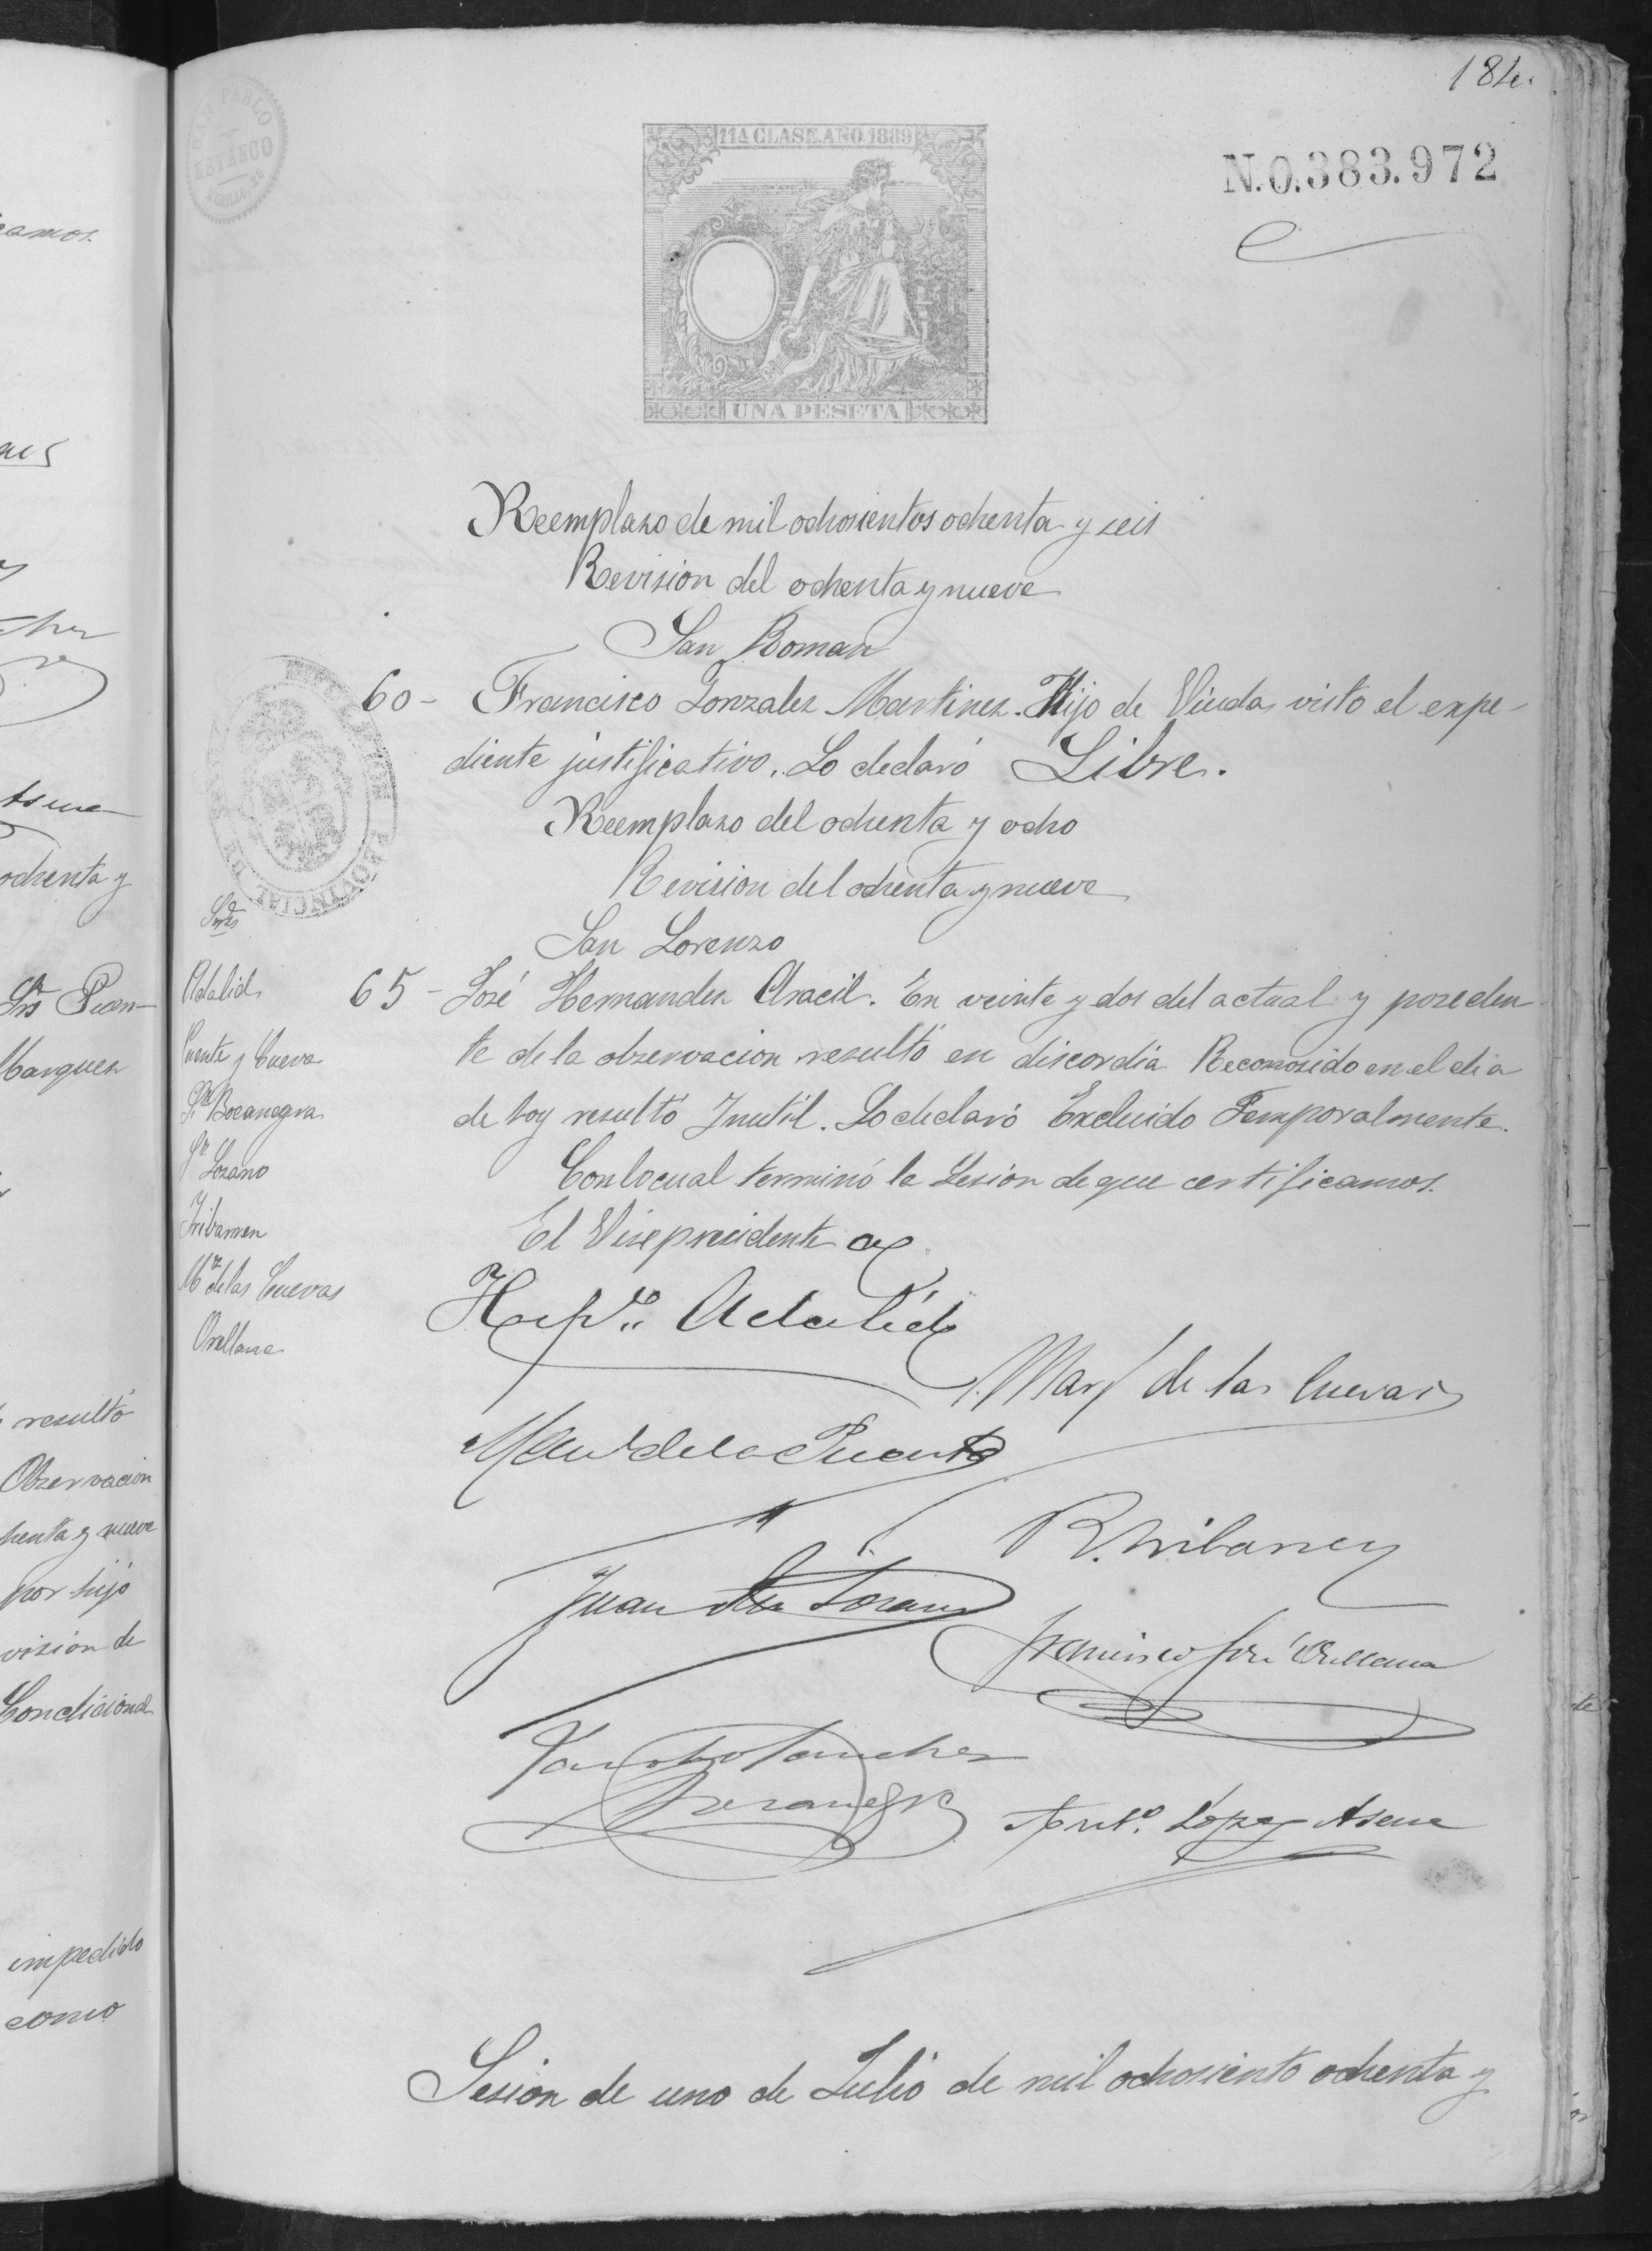 184.
SAN PABLO
ESTANCO
11A CLASE. AÑO. 1889
N.0.383.972
UNA PESETA
Reemplaso de mil ochosientos ochenta y seis
Revision del ochenta y nueve
San Roman
60- Francisco Gonzalez Martinez. Hijo de Viuda, visto el expe-
diente justificativo. Lo declaró Libre.
Reemplaso del ochenta y ocho
Revision del ochenta y nueve
San Lorenzo
65- José Hernandez Aracil. En veinte y dos del actual y poseden-
te de la observacion resultó en discordia Reconosido en el dia
de hoy resultó Inutil. Lo declaró Excluido Temporalmente.
Con lo cual terminó la Sesion de que certificamos.
El Vise presidente
PROVINCIAL
Adalid
Puente y Cueva
Bocanegra
Sr Lozano
Iribarren
Mz de las Cuevas
Orellana
Adalid
Marz de las Cuevas
Manl de la Puente
R. Iribarren
Juan Lozano
Francisco José Orellana
Sanchez
Bocanegra
Anto. Lopez Asme
Sesion de uno de Julio de mil ochosiento ochenta y
camos.
nes
Asme
ochenta y
Srs Puen-
Marquez
resultó
Observacion
henta y nueve
por hijo
vision de
Condicional
impedido
como